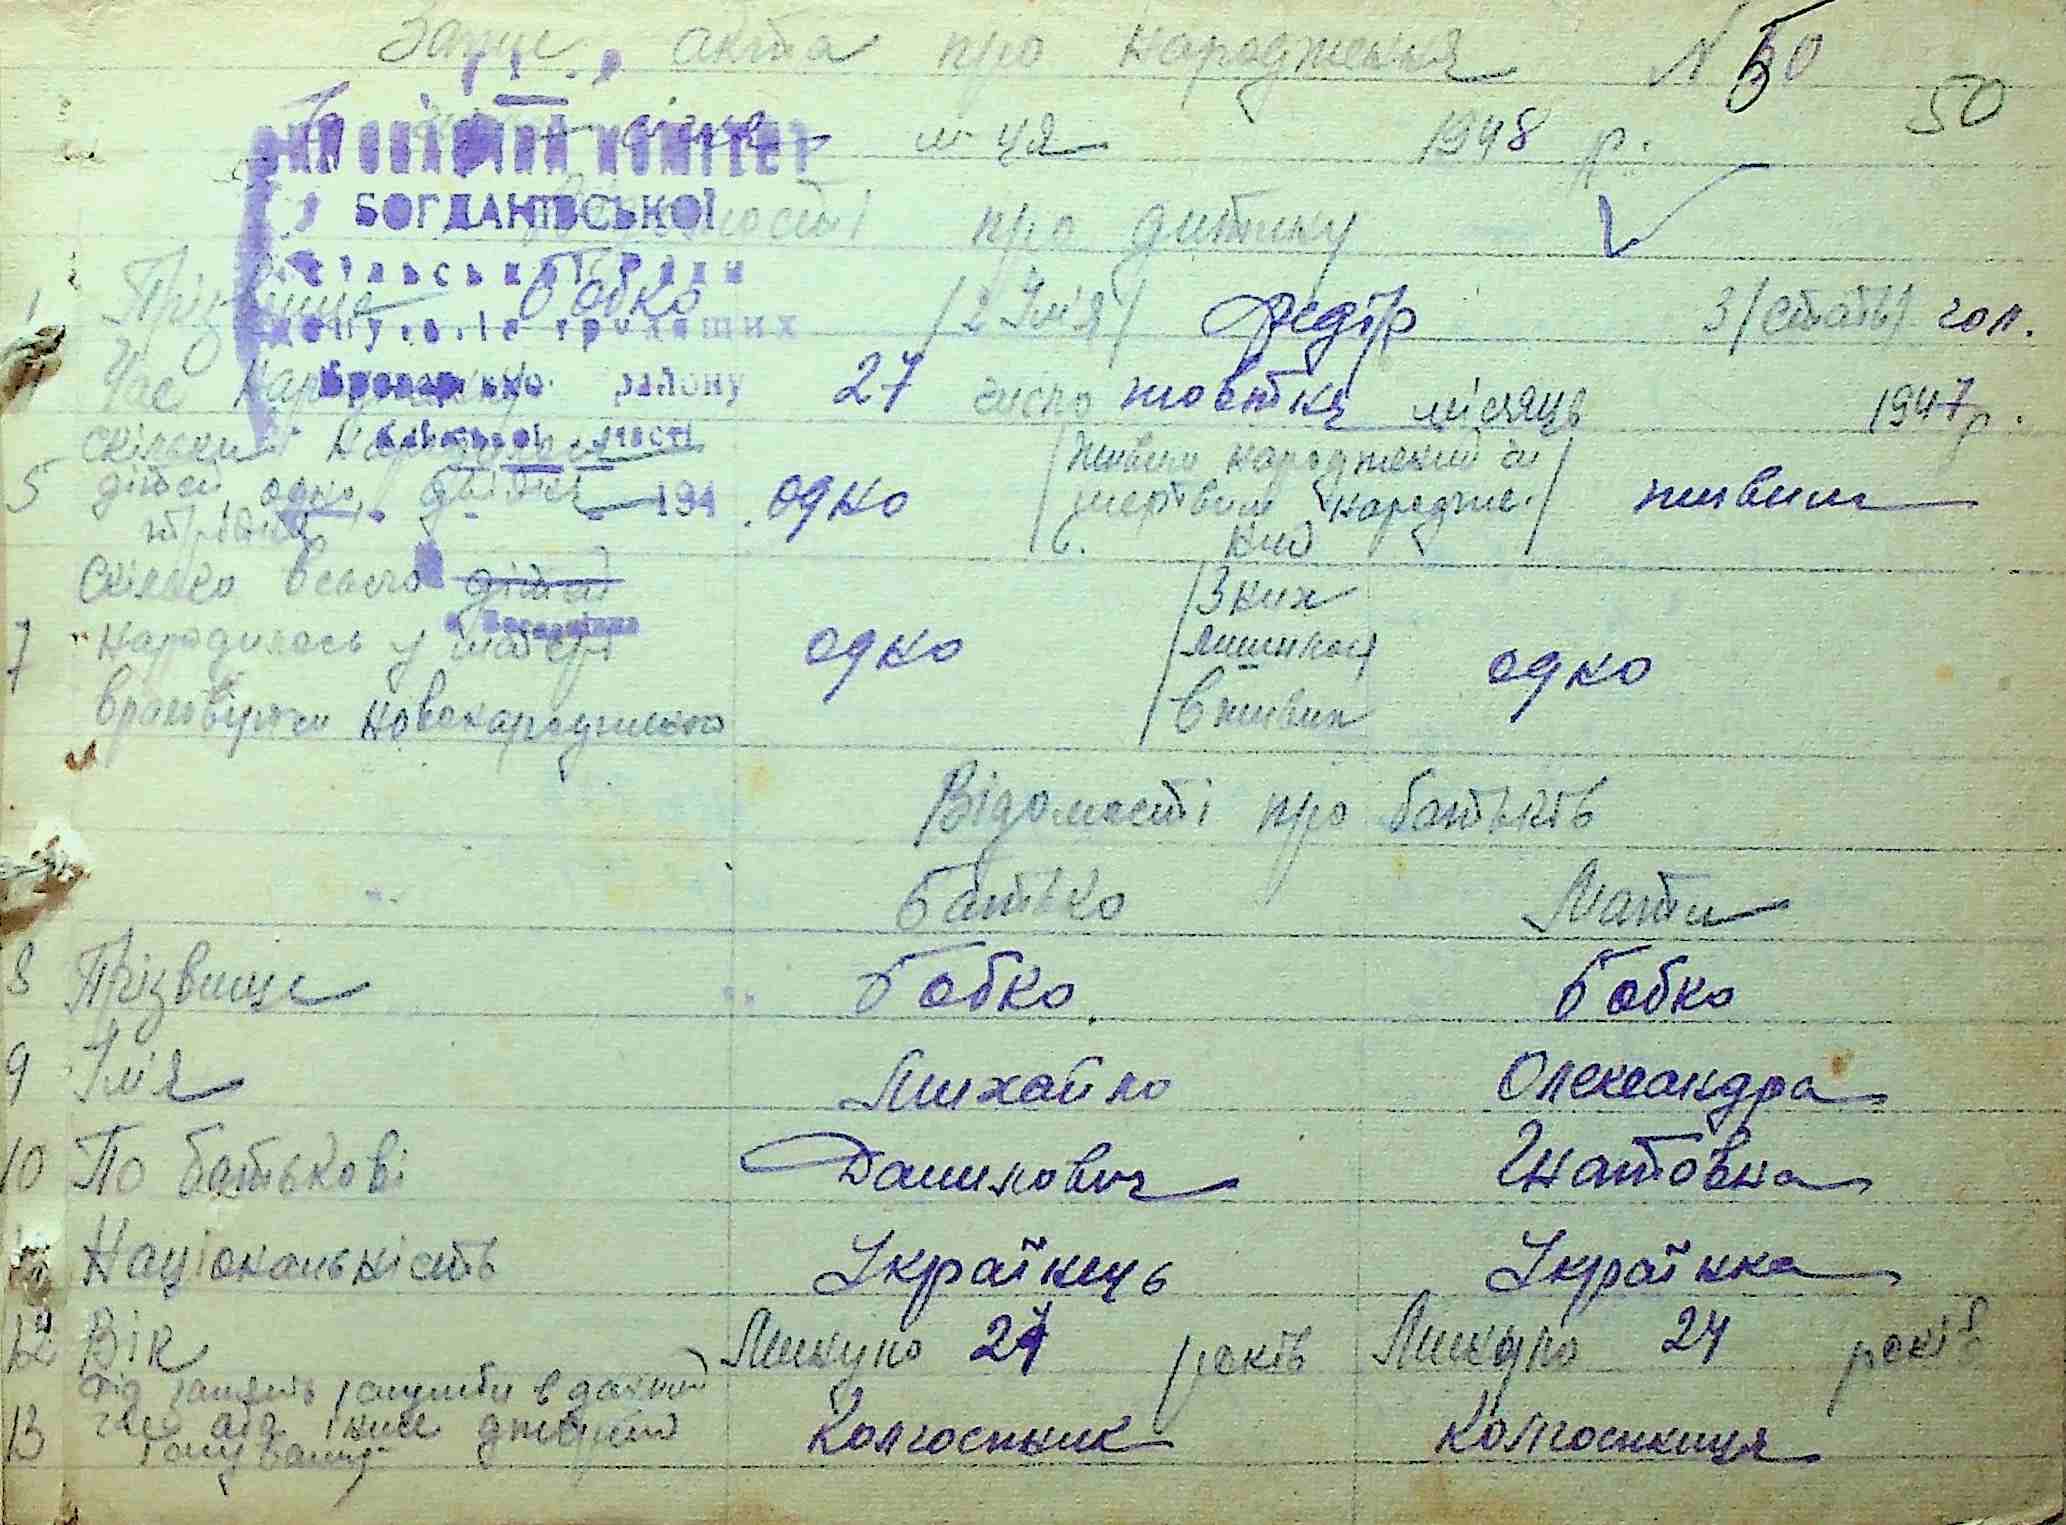 Запис акта про народження N 50
50
січня м-ця 1948 р.
ВИКОНАВЧИЙ КОМІТЕТ
БОГДАНІВСЬКОЇ
Відомості про дитину
сільської Ради
1 Прізвище Бобко /2 Ім'я/ Федір 3/стать/ чол.
депутатів трудящих
4 Час народження 27 число жовтня місяць 1947 р.
Броварського району
Київської області
скільки народилося /живим народжений чи
5 дітей одно, двійня 194 одно мертвим народже- живим
трійня ний/
скілько всього дітей /З них
7 народилось у матері одно лишилося одно
враховуючи новонародженого в живих
Відомості про батьків
Батько Мати
8 Прізвище Бобко Бобко
9 Ім'я Михайло Олександра
10 По батькові Данилович Гнатовна
Національність Українець Українка
12 Вік Минуло 24 років Минуло 24 років
Рід занять /служби в даний
13 час або інше джерело Колгоспник Колгоспниця
існування/